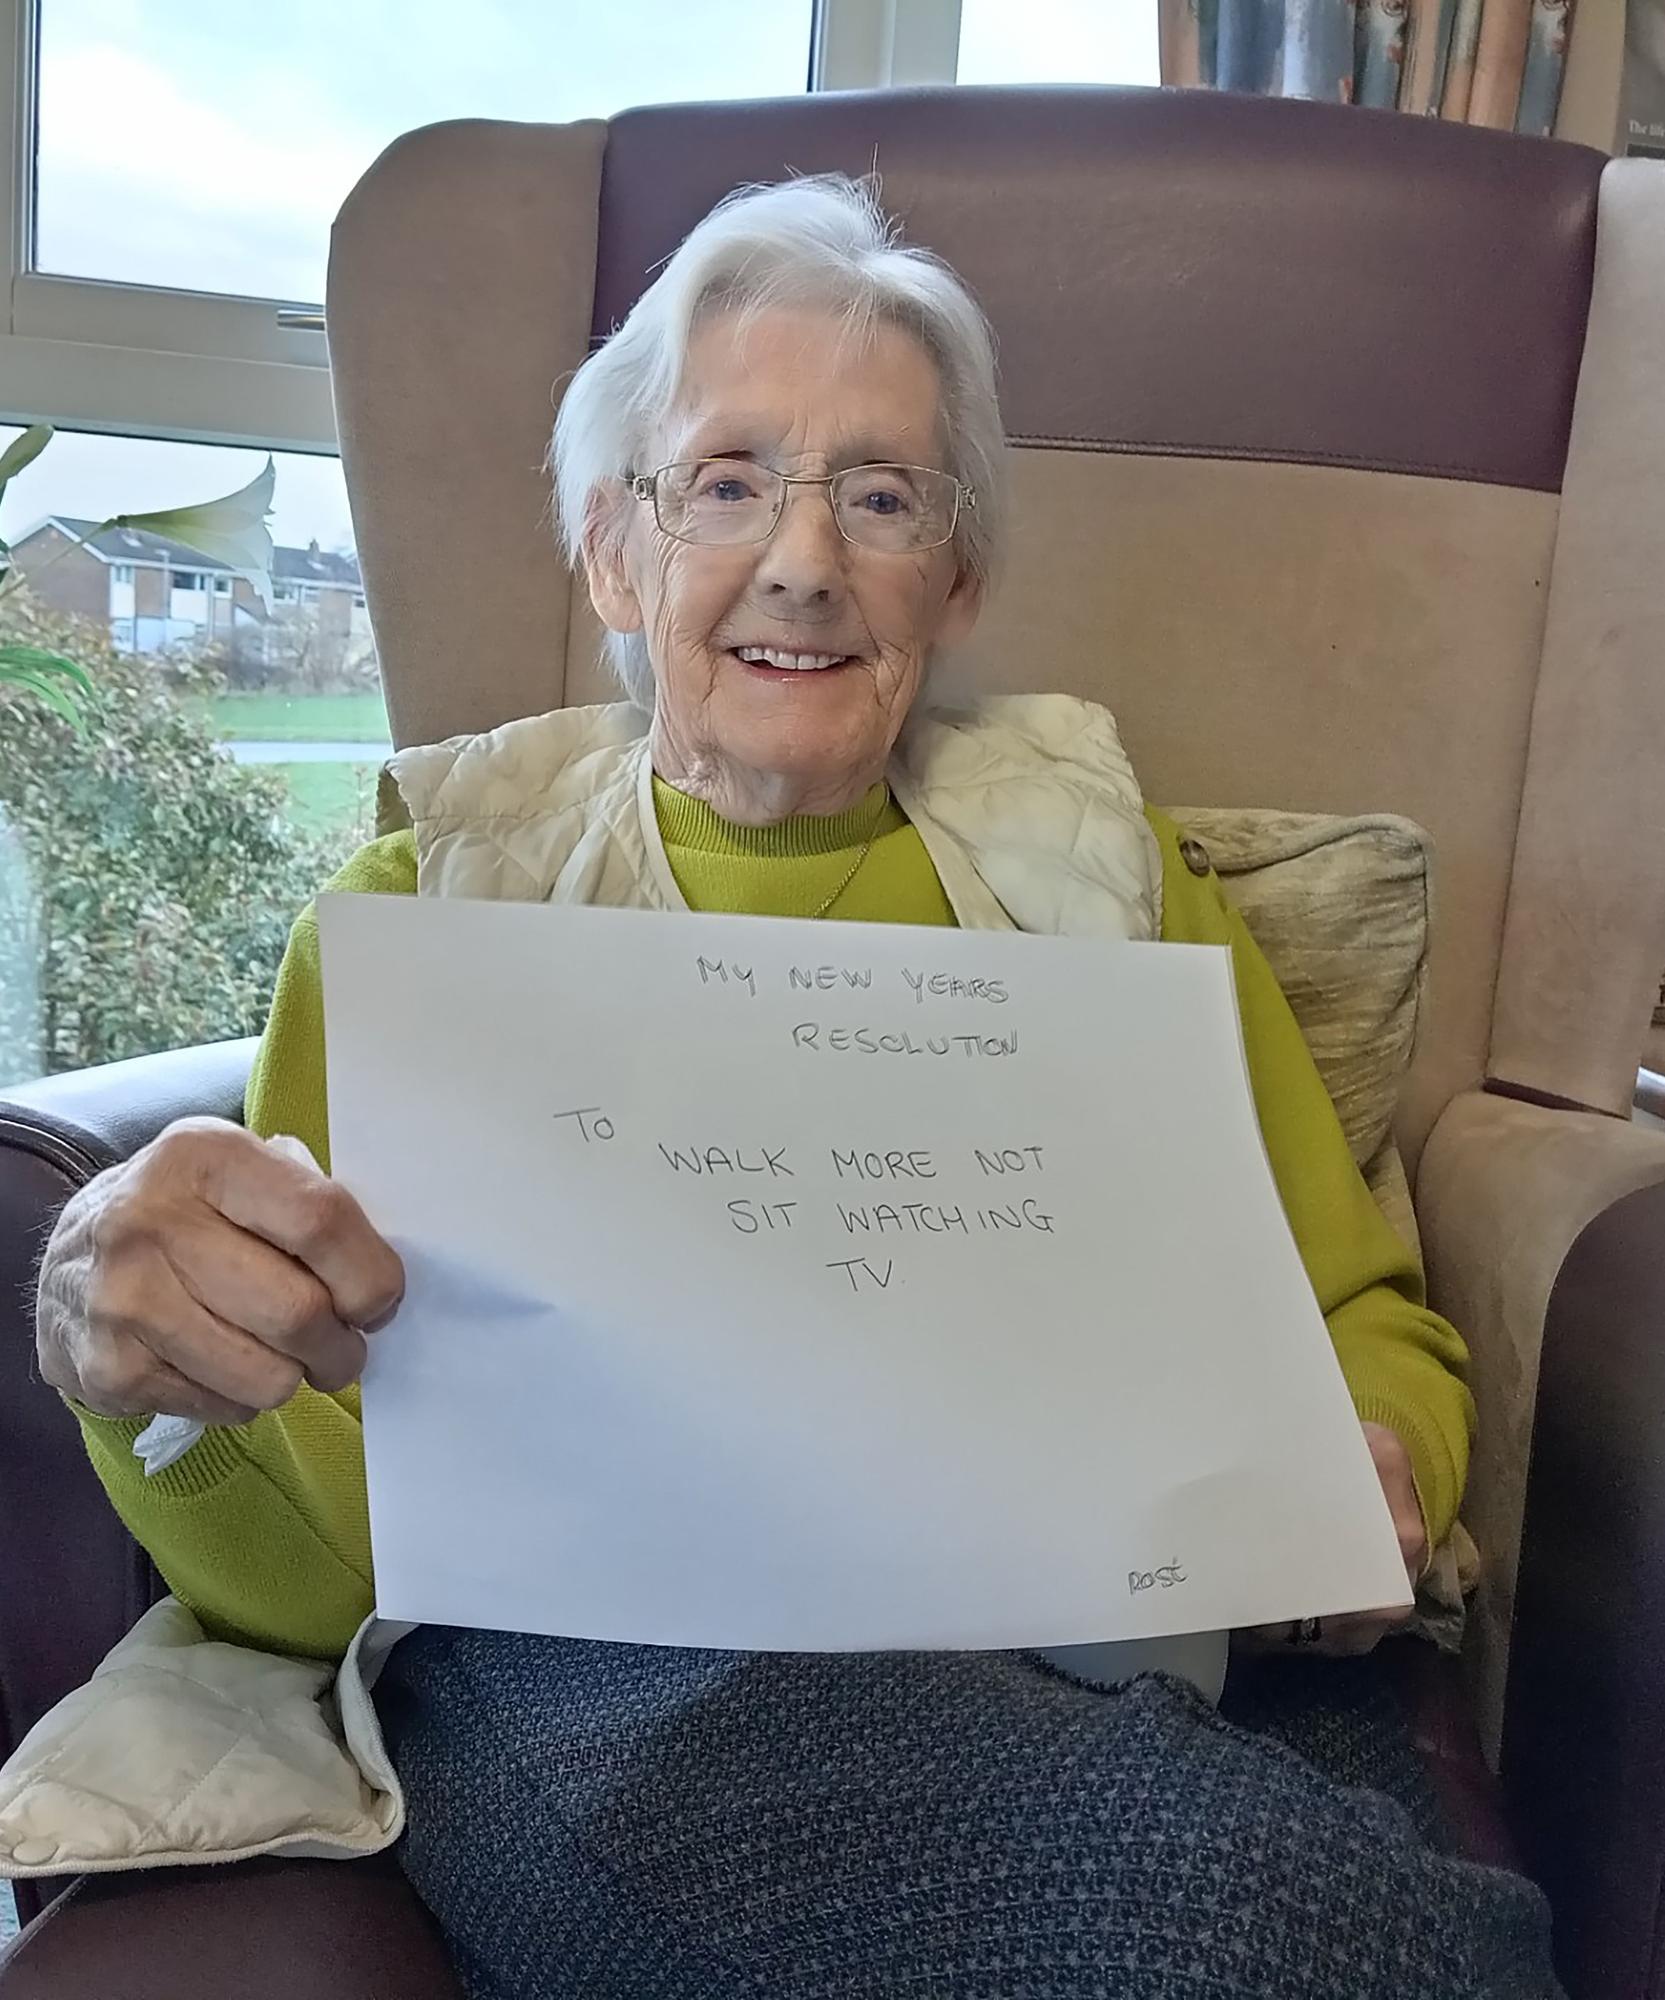 The life
MY NEW YEARS
RESOLUTION
To
WALK MORE NOT
SIT WATCHING
TV.
ROSE